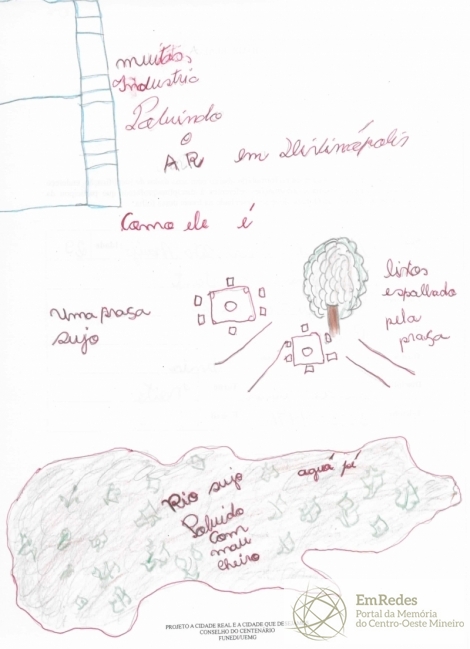 muitas
Industria
Poluindo
o
AR em Divinópolis
Como ele é
uma praça
sujo
lixos
espalhado
pela
praça
Rio sujo
Poluido
com
mau
cheiro
aguá pé
PROJETO A CIDADE REAL E A CIDADE QUE DE
CONSELHO DO CENTENÁRIO
FUNEDI/UEMG
EmRedes
Portal da Memória
do Centro-Oeste Mineiro